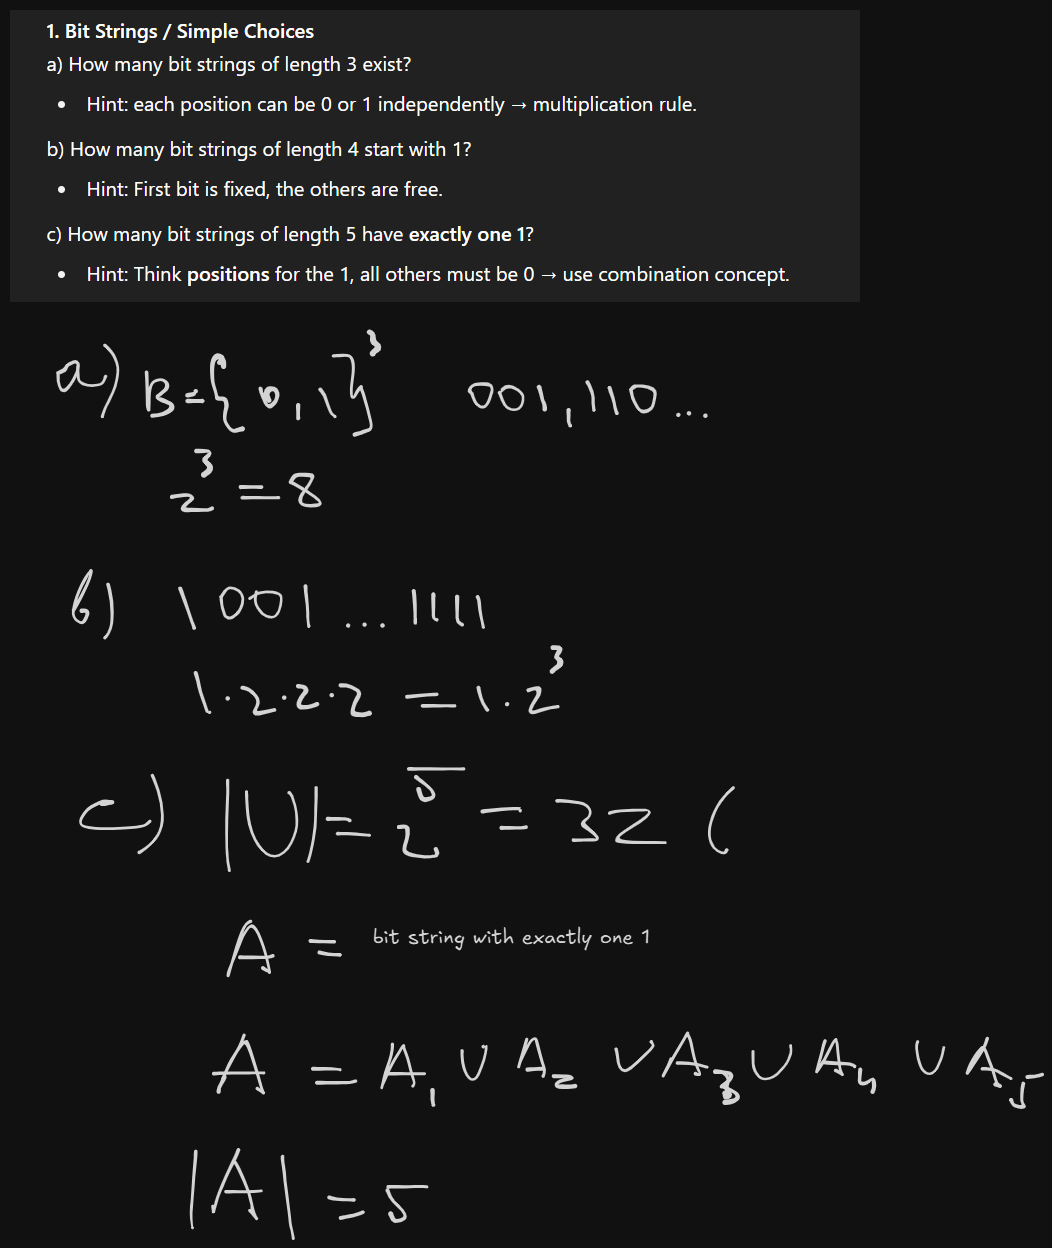 1. Bit Strings / Simple Choices
a) How many bit strings of length 3 exist?
• Hint: each position can be 0 or 1 independently → multiplication rule.
b) How many bit strings of length 4 start with 1?
• Hint: First bit is fixed, the others are free.
c) How many bit strings of length 5 have exactly one 1?
• Hint: Think positions for the 1, all others must be 0 → use combination concept.
a) B={0,1}³ 001,110...
2³ = 8
b) 1001...1111
1·2·2·2 = 1·2³
c) |U|= 2⁵ = 32 (
A = bit string with exactly one 1
A = A₁ ∪ A₂ ∪ A₃ ∪ A₄ ∪ A₅
|A| = 5